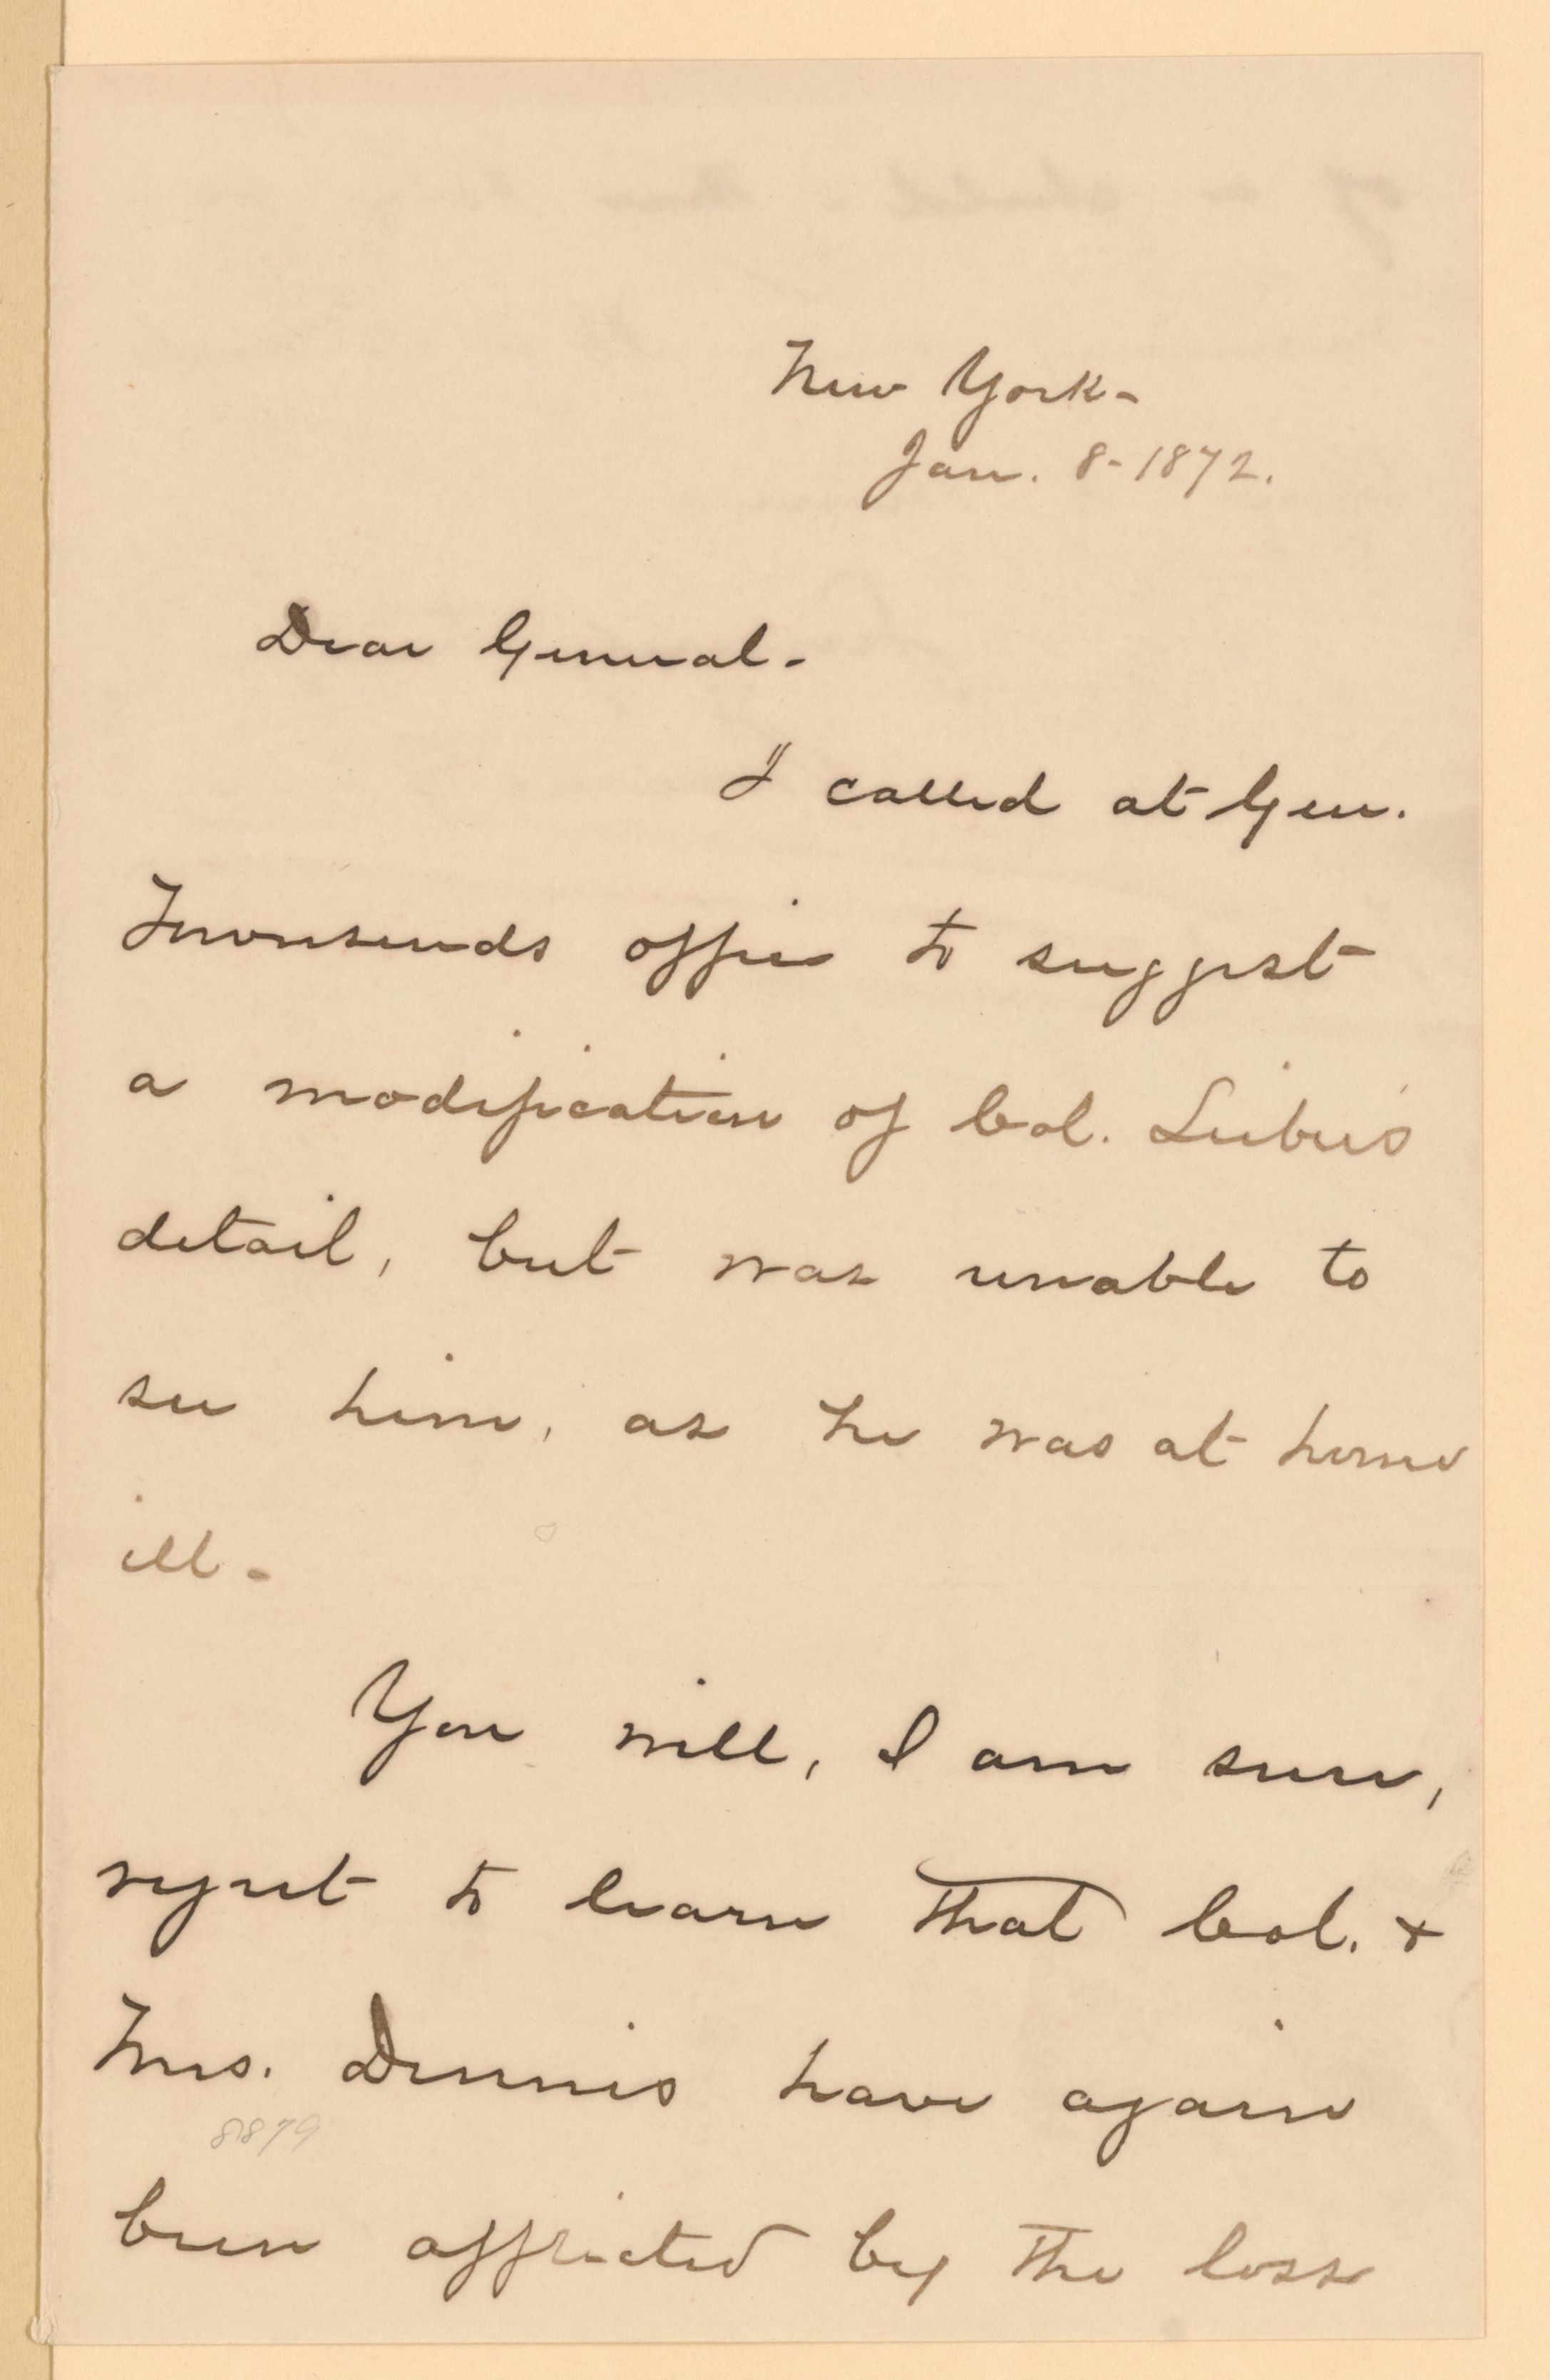 New York-
Jan. 8-1872.
Dear General-
I called at Gen.
Townsends office to suggest
a modification of Col.
detail, but was unable to
see him, as he was at home
ill-
You will, I am sure,
regret to learn that Col. &
Mrs. Dennis have again
8879
been afflicted by the loss